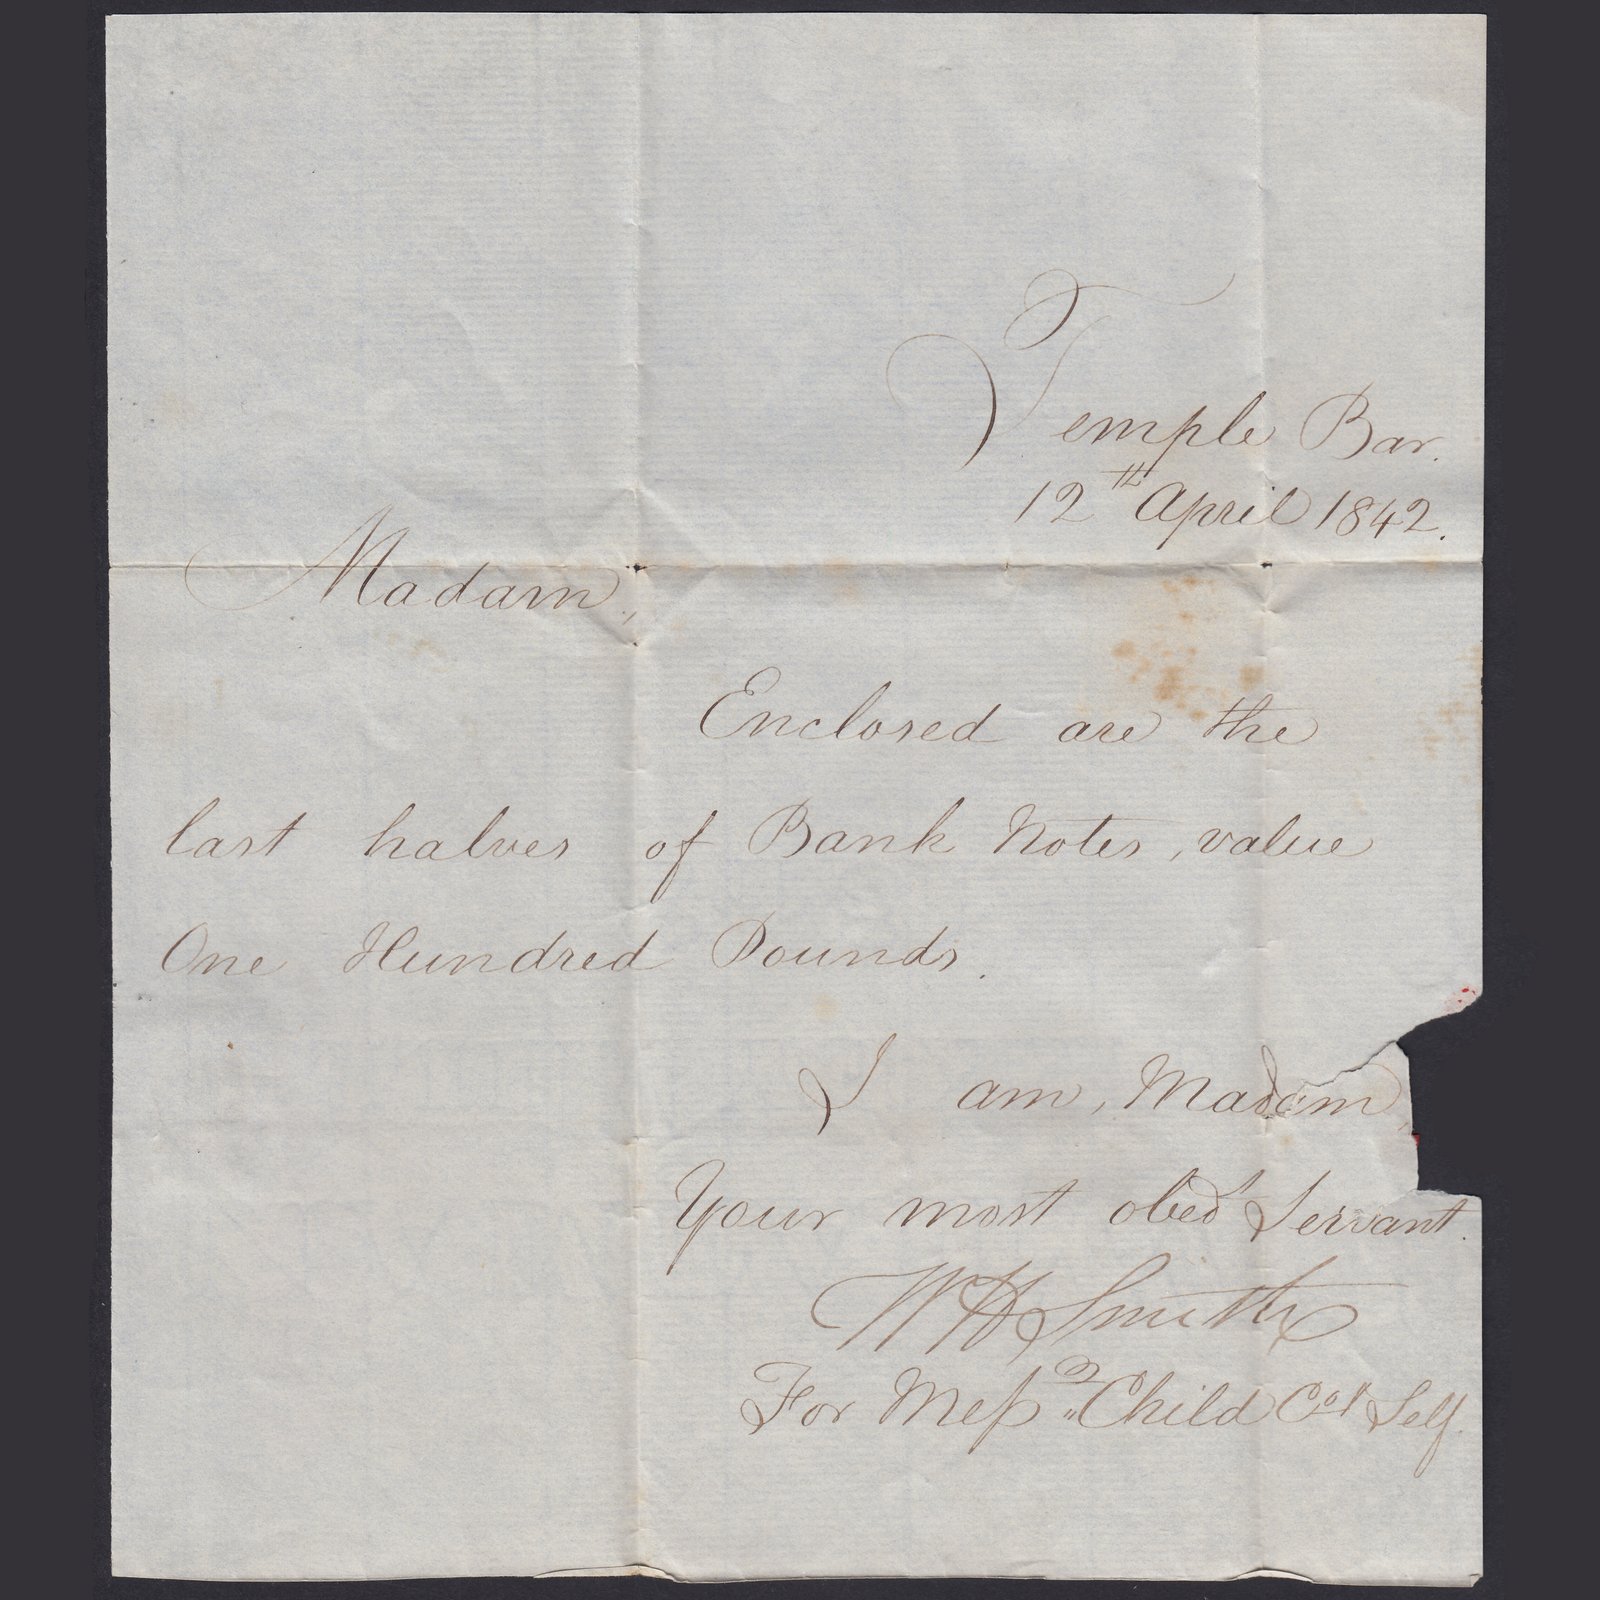 Temple Bar.
12th April 1842.
Madam,
Enclosed are the
last halves of Bank Notes, value
One Hundred Pounds.
I am, Madam,
Your most obed^t Servant.
WH Smith
For Mess^rs Child Co & Self.